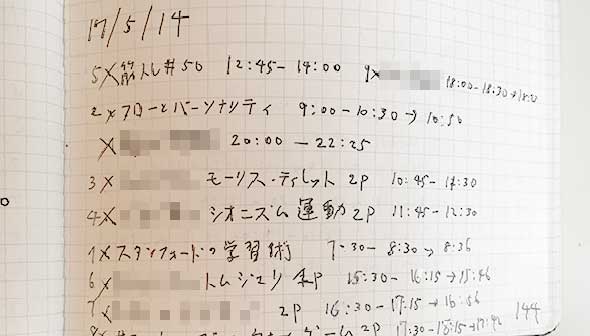 17/5/14
5× 筋トレ#50 12:45-14:00 9× 18:00-18:30→18:20
2× フローとパーソナリティ 9:00-10:30→10:50
× 20:00-22:25
3× モーリス・ティレット 2P 10:45-11:30
4× シオニズム運動 2P 11:45-12:30
1× スタンフォードの学習術 7:30-8:30→8:36
6× トムジェリ 15:30-16:15→15:46
7× 2P 16:30-17:15→16:56 144
ゲーム 2P 17:30-18:15→